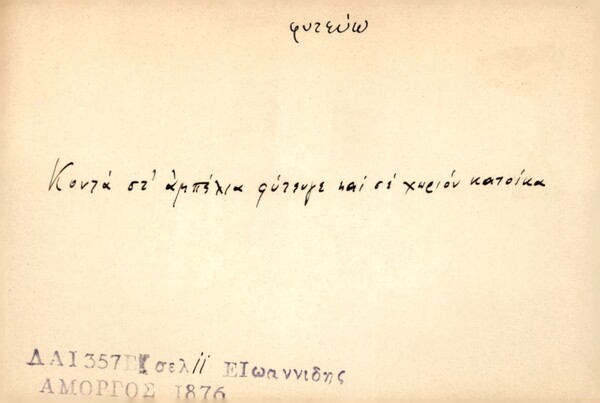 φυτεύω
Κοντά στ' ἀμπέλια φύτευγε καί σέ χωριόν κατοίκα
ΔΑΙ 357 σελ 11 ΕΙωαννιδης
ΑΜΟΡΓΟΣ 1876